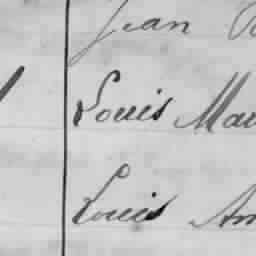 Jean
Louis Mau
Louis Am